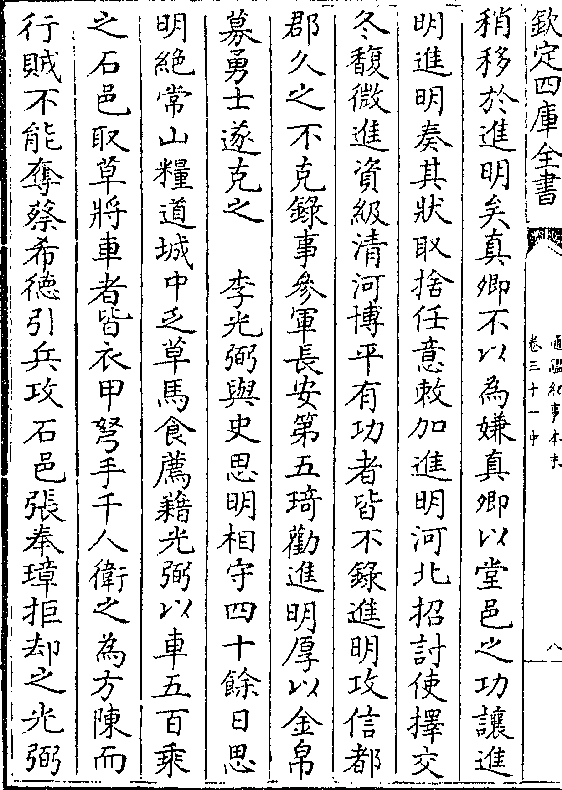 欽定四庫全書
通鑑紀事本末
卷三十一中
八
稍移於進明矣真卿不以為嫌真卿以堂邑之功讓進
明進明奏其狀取捨任意敕加進明河北招討使擇交
冬馥微進資級清河博平有功者皆不錄進明攻信都
郡久之不克錄事參軍長安第五琦勸進明厚以金帛
募勇士遂克之　李光弼與史思明相守四十餘日思
明絕常山糧道城中乏草馬食薦藉光弼以車五百乘
之石邑取草將車者皆衣甲弩手千人衛之為方陳而
行賊不能奪蔡希德引兵攻石邑張奉璋拒却之光弼